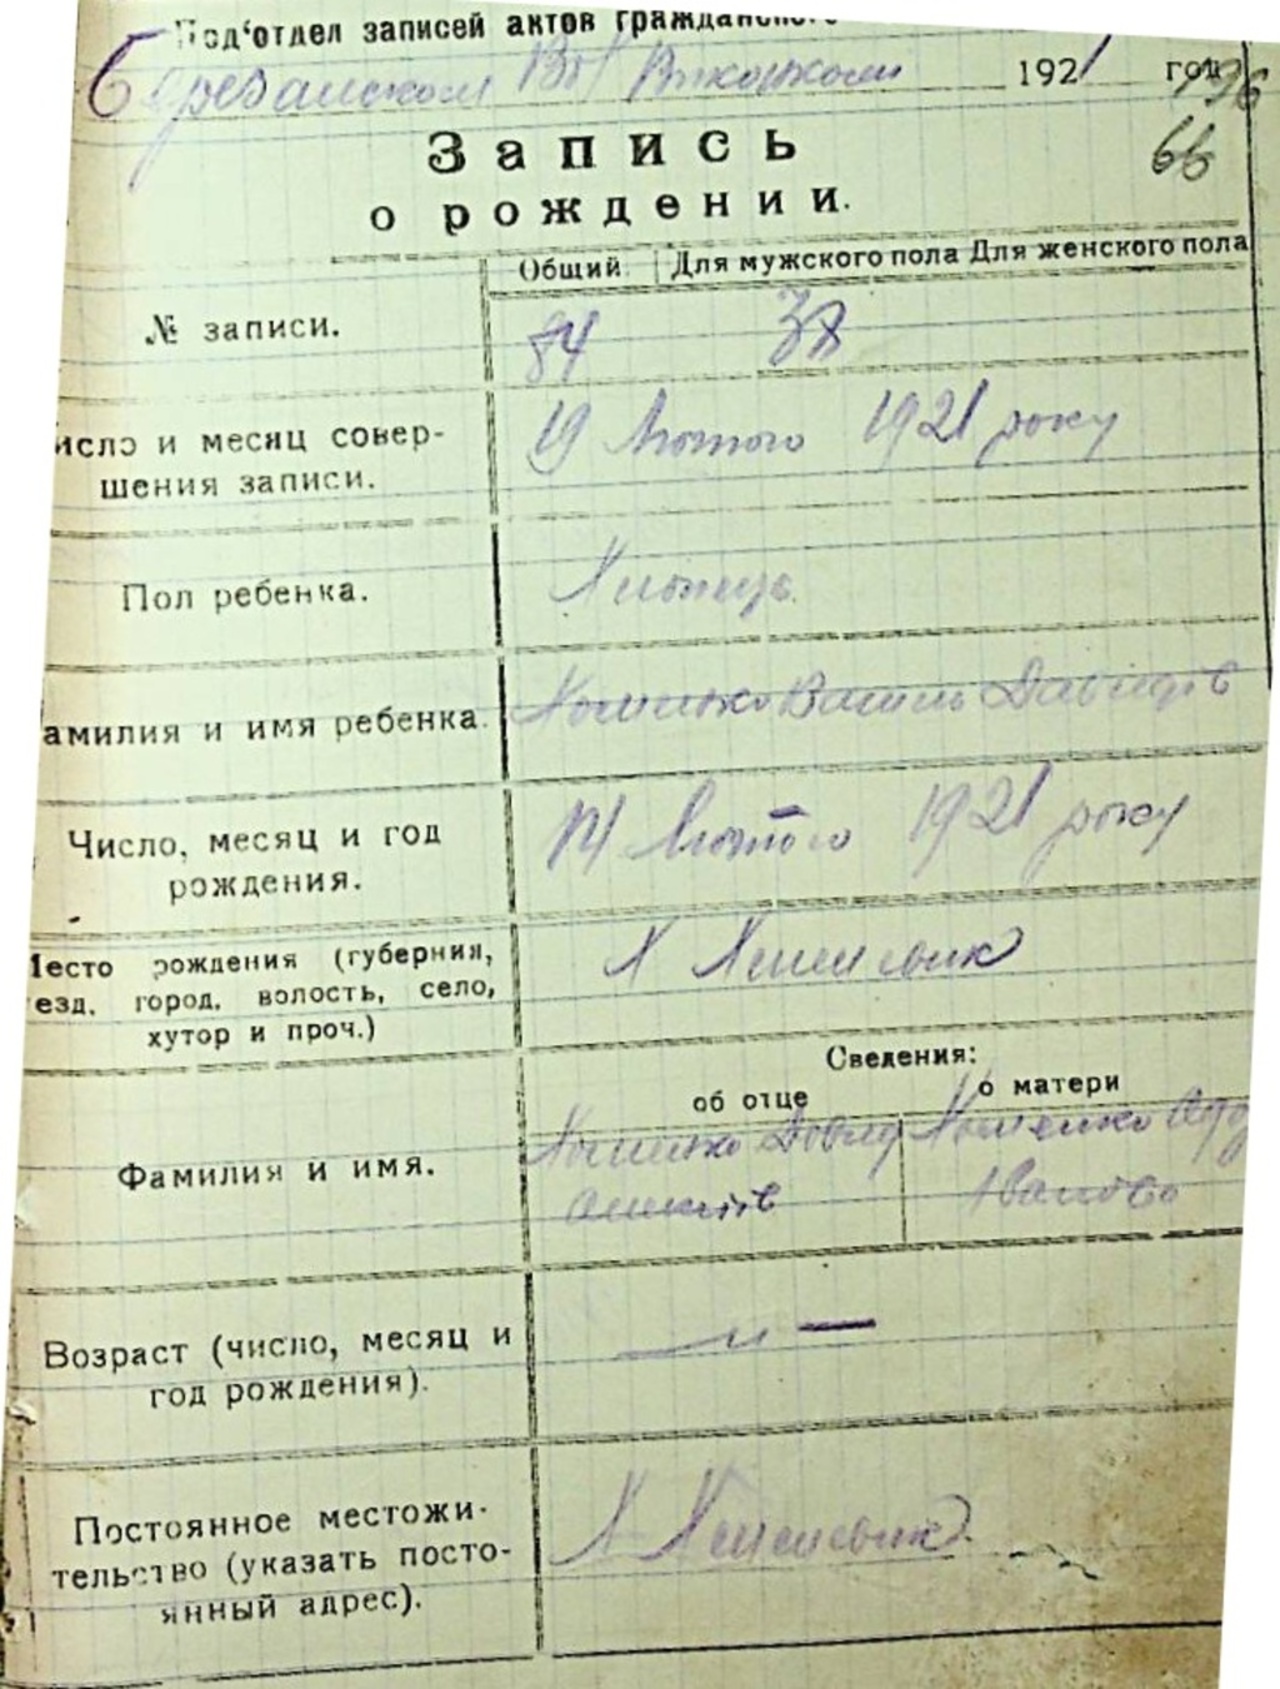 Под'отдел записей актов гражданского
Березанском Вол Виконкоми 1921 год
66
Запись
о рождении.
Общий. Для мужского пола Для женского пола
№ записи. 84 38
исло и месяц совер-
шения записи.
19 Лютого 1921 року
Пол ребенка. Хлопець.
амилия и имя ребенка. Василь Давидів
Число, месяц и год
рождения.
14 Лютого 1921 року
Место рождения (губерния,
езд, город, волость, село,
хутор и проч.)
Х
Сведения:
об отце о матери
Фамилия и имя.
Давид
Іванова
Возраст (число, месяц и
год рождения).
Постоянное местожи-
тельство (указать посто-
янный адрес).
Х